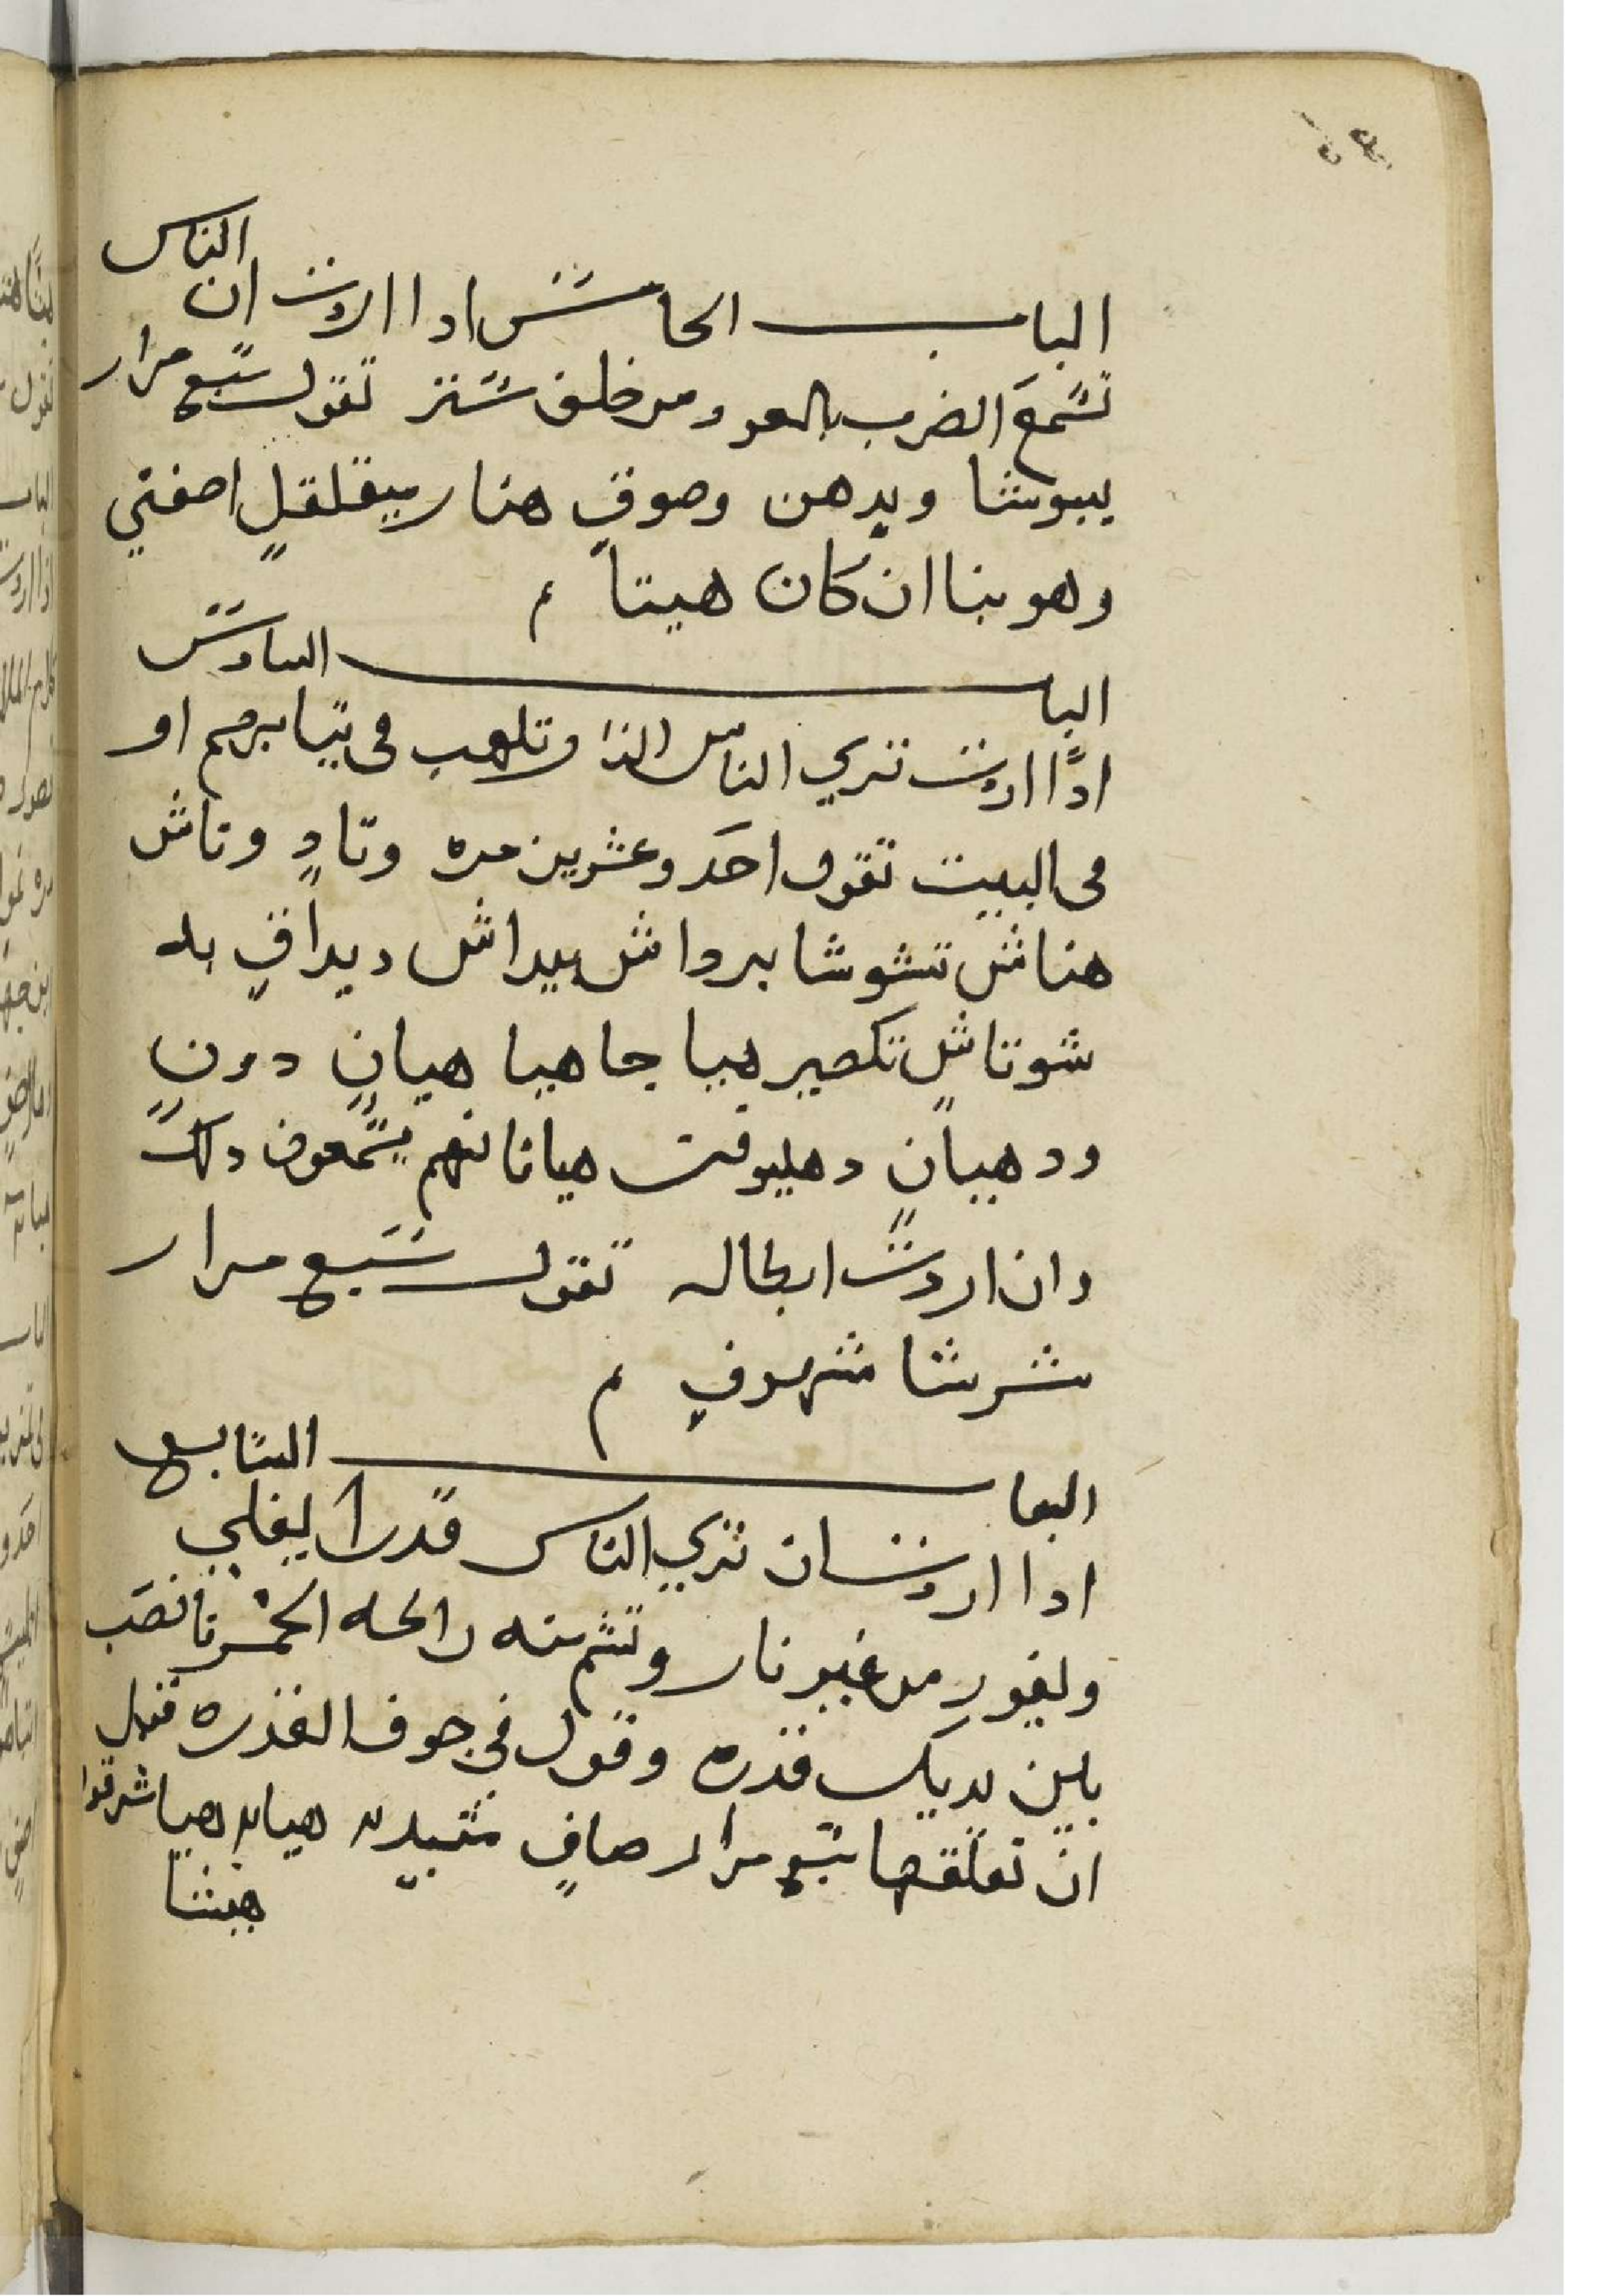 الباب الخامس ادا اردت ان الناس
تسمع الضرب بالعود من خلف ستر تقول سبع مرار
يبوشا ويدهن وصوق هنار بيقلقل اصفتي
وهو بنا ان كان هيتا م
الباب السادس
ادا اردت تري الناس النار تلهب فى تيابرهم او
فى البيت تقول احد وعشرين مره وتاد وتاش
هناش تشوشا برواش بيداش ديداق بد
شوتاش تكصير هيا جا هيا هيان دون
ود هيبان دهليوقت هيانا نهم يسمعون دلك
وان اردت ابطاله تقول سبع مرار
شرشا شهوف م
الباب السابع
ادا اردت ان تري الناس قدرا يغلي
ويفور من غير نار وتشم منه رائحه الخمر تا نصب
بين يديك قدره وقول في جوف القدره قبل
ان تعلقها سبع مرار صاف شقيد له هيا به هيا شرقوا
هيشا